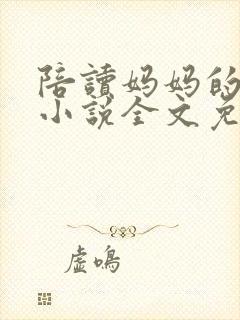 陪讀妈妈的
小说全文免
虚鸣